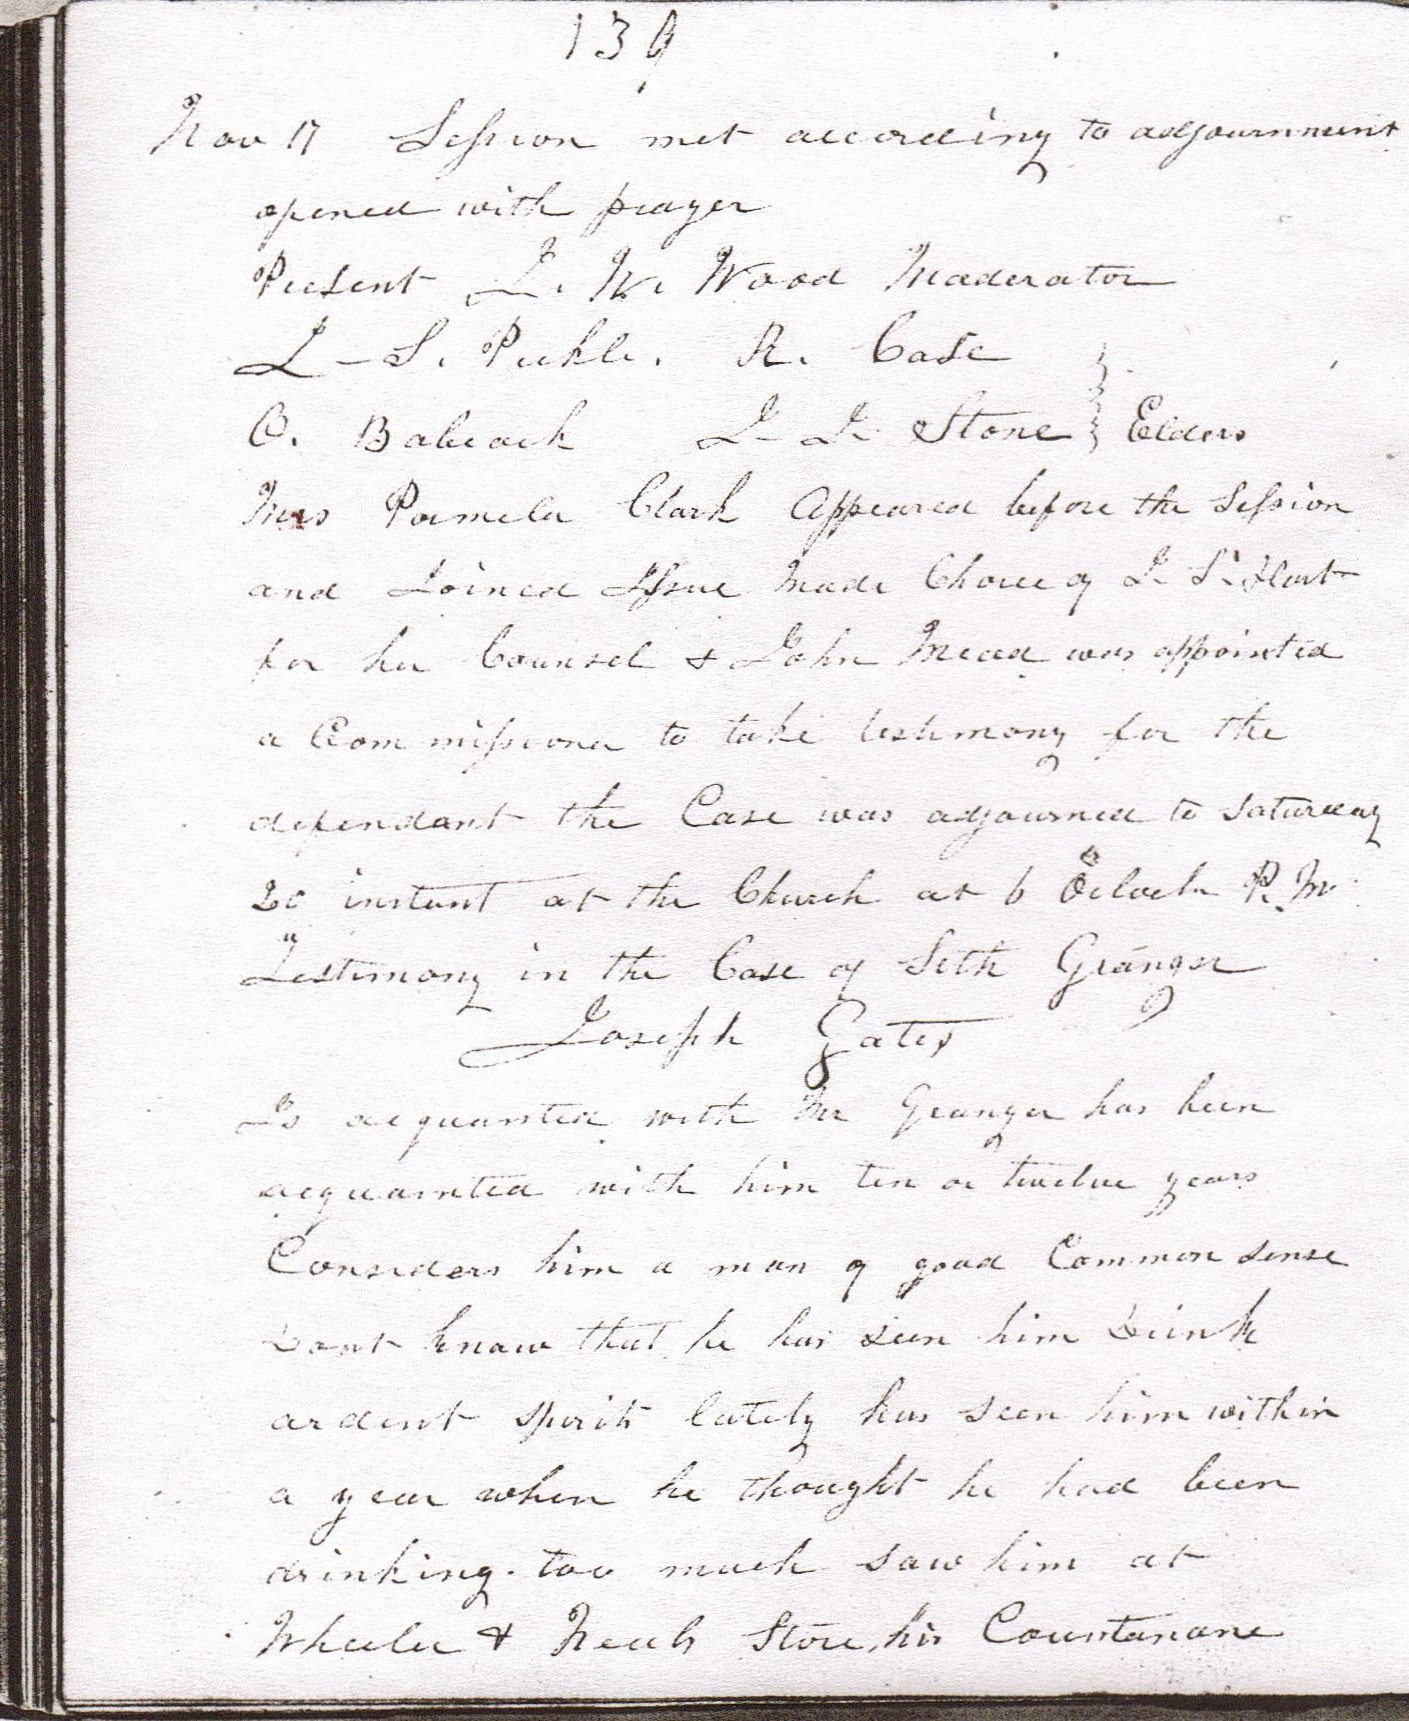 139
Nov 17 Session met according to adjournment
opened with prayer
Present L. W. Wood Maderator
L - S. Pickle. R. Case
O. Babcock J - J. Stone } Elders
Mrs Pamela Clark Appeared before the Session
and Joined Issue Made Choice of J. S.
for her Counsel & John Mead was appointed
a Commissioner to take testimony for the
dependant the Case was adjourned to Saturday
20 instant at the Church at 6 Oclock P. M.
Testimony in the Case of Seth Granger
Joseph Gates
Is acquainted with Mr Granger has been
acquainted with him ten or twelve years
Considers him a man of good Common sense
Dont know that he has seen him Drink
ardent spirit lately has seen him within
a year when he thought he had been
drinking. too much saw him at
Wheeler & Store, his Countanance